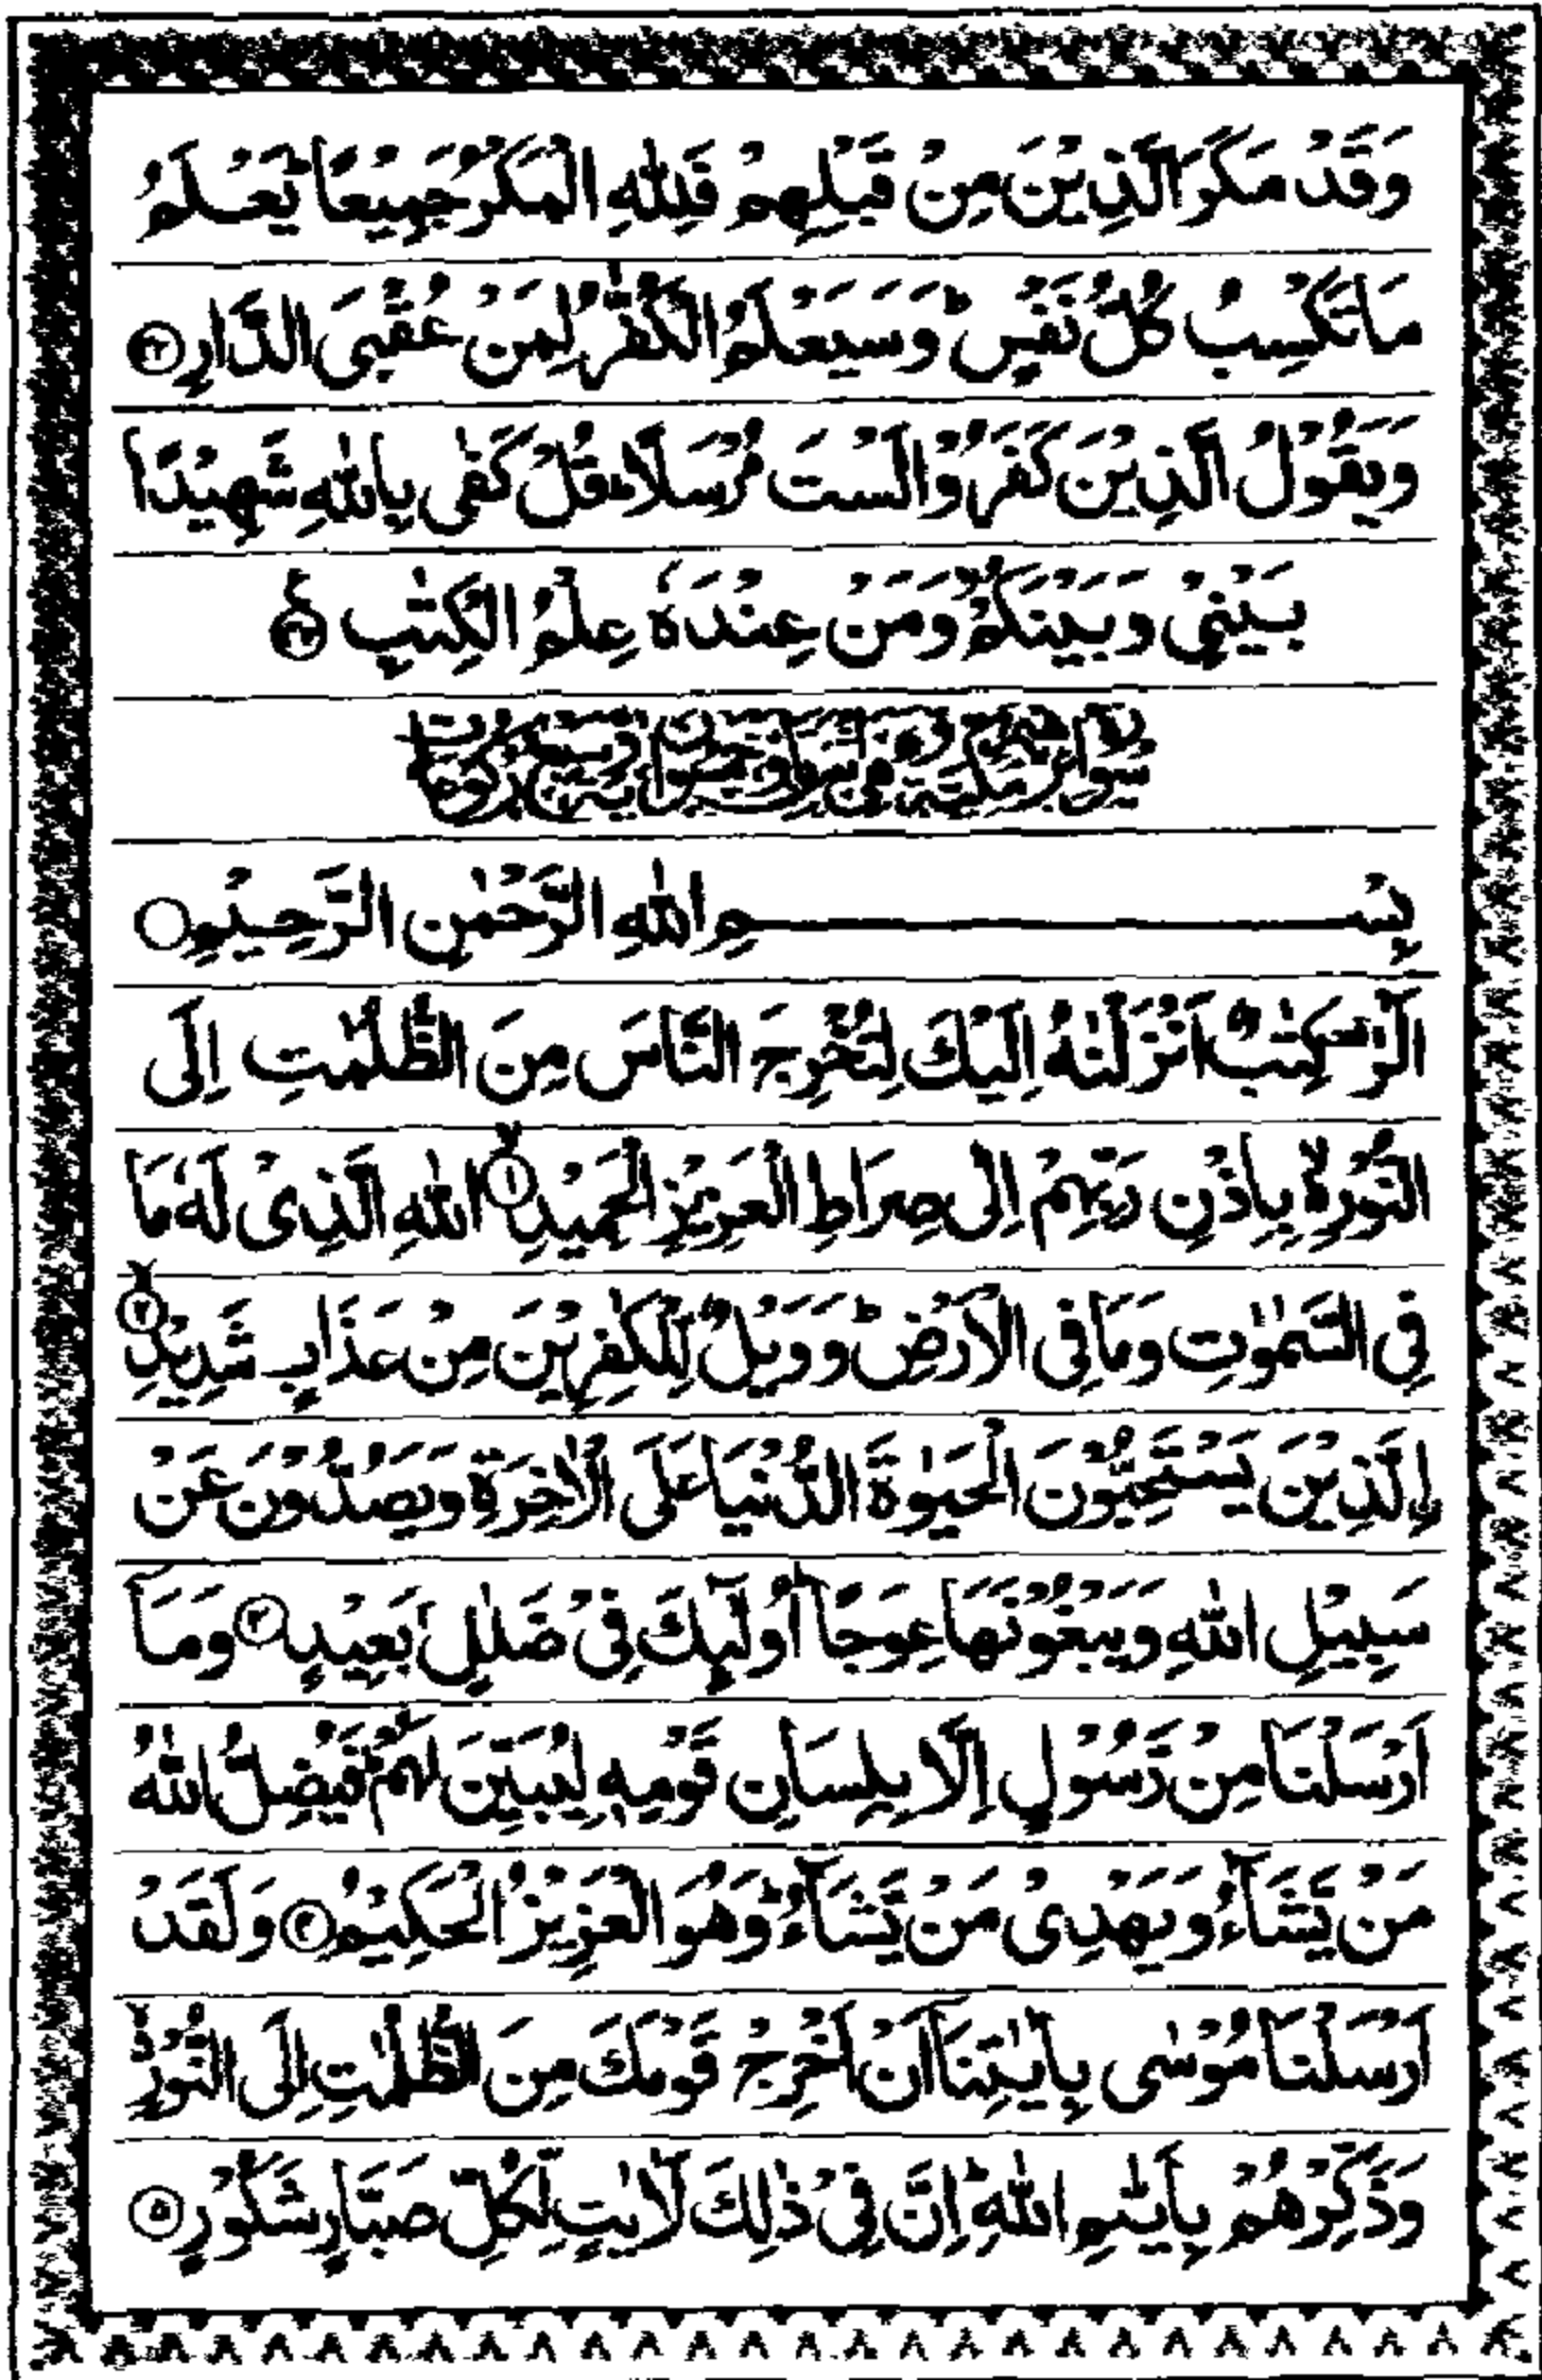 وَقَدْ مَكَرَ الَّذِيْنَ مِنْ قَبْلِهِمْ فَلِلّٰهِ الْمَكْرُ جَمِيْعًا ؕ يَعْلَمُ
مَا تَكْسِبُ كُلُّ نَفْسٍ ؕ وَسَيَعْلَمُ الْكُفّٰرُ لِمَنْ عُقْبَى الدَّارِ ﴿۴۲﴾
وَيَقُوْلُ الَّذِيْنَ كَفَرُوْا لَسْتَ مُرْسَلًا ؕ قُلْ كَفٰى بِاللّٰهِ شَهِيْدًۢا
بَيْنِيْ وَبَيْنَكُمْ ۙ وَمَنْ عِنْدَهٗ عِلْمُ الْكِتٰبِ ﴿۴۳﴾
بِسْمِ اللّٰهِ الرَّحْمٰنِ الرَّحِيْمِ
الٓرٰ ۟ كِتٰبٌ اَنْزَلْنٰهُ اِلَيْكَ لِتُخْرِجَ النَّاسَ مِنَ الظُّلُمٰتِ اِلَى
النُّوْرِ ۙ بِاِذْنِ رَبِّهِمْ اِلٰى صِرَاطِ الْعَزِيْزِ الْحَمِيْدِ ۙ ﴿۱﴾ اللّٰهِ الَّذِيْ لَهٗ مَا
فِى السَّمٰوٰتِ وَمَا فِى الْاَرْضِ ؕ وَوَيْلٌ لِّلْكٰفِرِيْنَ مِنْ عَذَابٍ شَدِيْدِ ۙ ﴿۲﴾
ۨالَّذِيْنَ يَسْتَحِبُّوْنَ الْحَيٰوةَ الدُّنْيَا عَلَى الْاٰخِرَةِ وَيَصُدُّوْنَ عَنْ
سَبِيْلِ اللّٰهِ وَيَبْغُوْنَهَا عِوَجًا ؕ اُولٰٓئِكَ فِيْ ضَلٰلٍۭ بَعِيْدٍ ﴿۳﴾ وَمَآ
اَرْسَلْنَا مِنْ رَّسُوْلٍ اِلَّا بِلِسَانِ قَوْمِهٖ لِيُبَيِّنَ لَهُمْ ؕ فَيُضِلُّ اللّٰهُ
مَنْ يَّشَآءُ وَيَهْدِيْ مَنْ يَّشَآءُ ؕ وَهُوَ الْعَزِيْزُ الْحَكِيْمُ ﴿۴﴾ وَلَقَدْ
اَرْسَلْنَا مُوْسٰى بِاٰيٰتِنَآ اَنْ اَخْرِجْ قَوْمَكَ مِنَ الظُّلُمٰتِ اِلَى النُّوْرِ ۙ
وَذَكِّرْهُمْ بِاَيّٰىمِ اللّٰهِ ؕ اِنَّ فِيْ ذٰلِكَ لَاٰيٰتٍ لِّكُلِّ صَبَّارٍ شَكُوْرٍ ﴿۵﴾